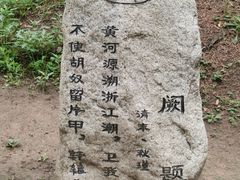 阙题
清末 秋瑾
黄河源溯浙江潮，卫我
不使胡奴留片甲，轩辕